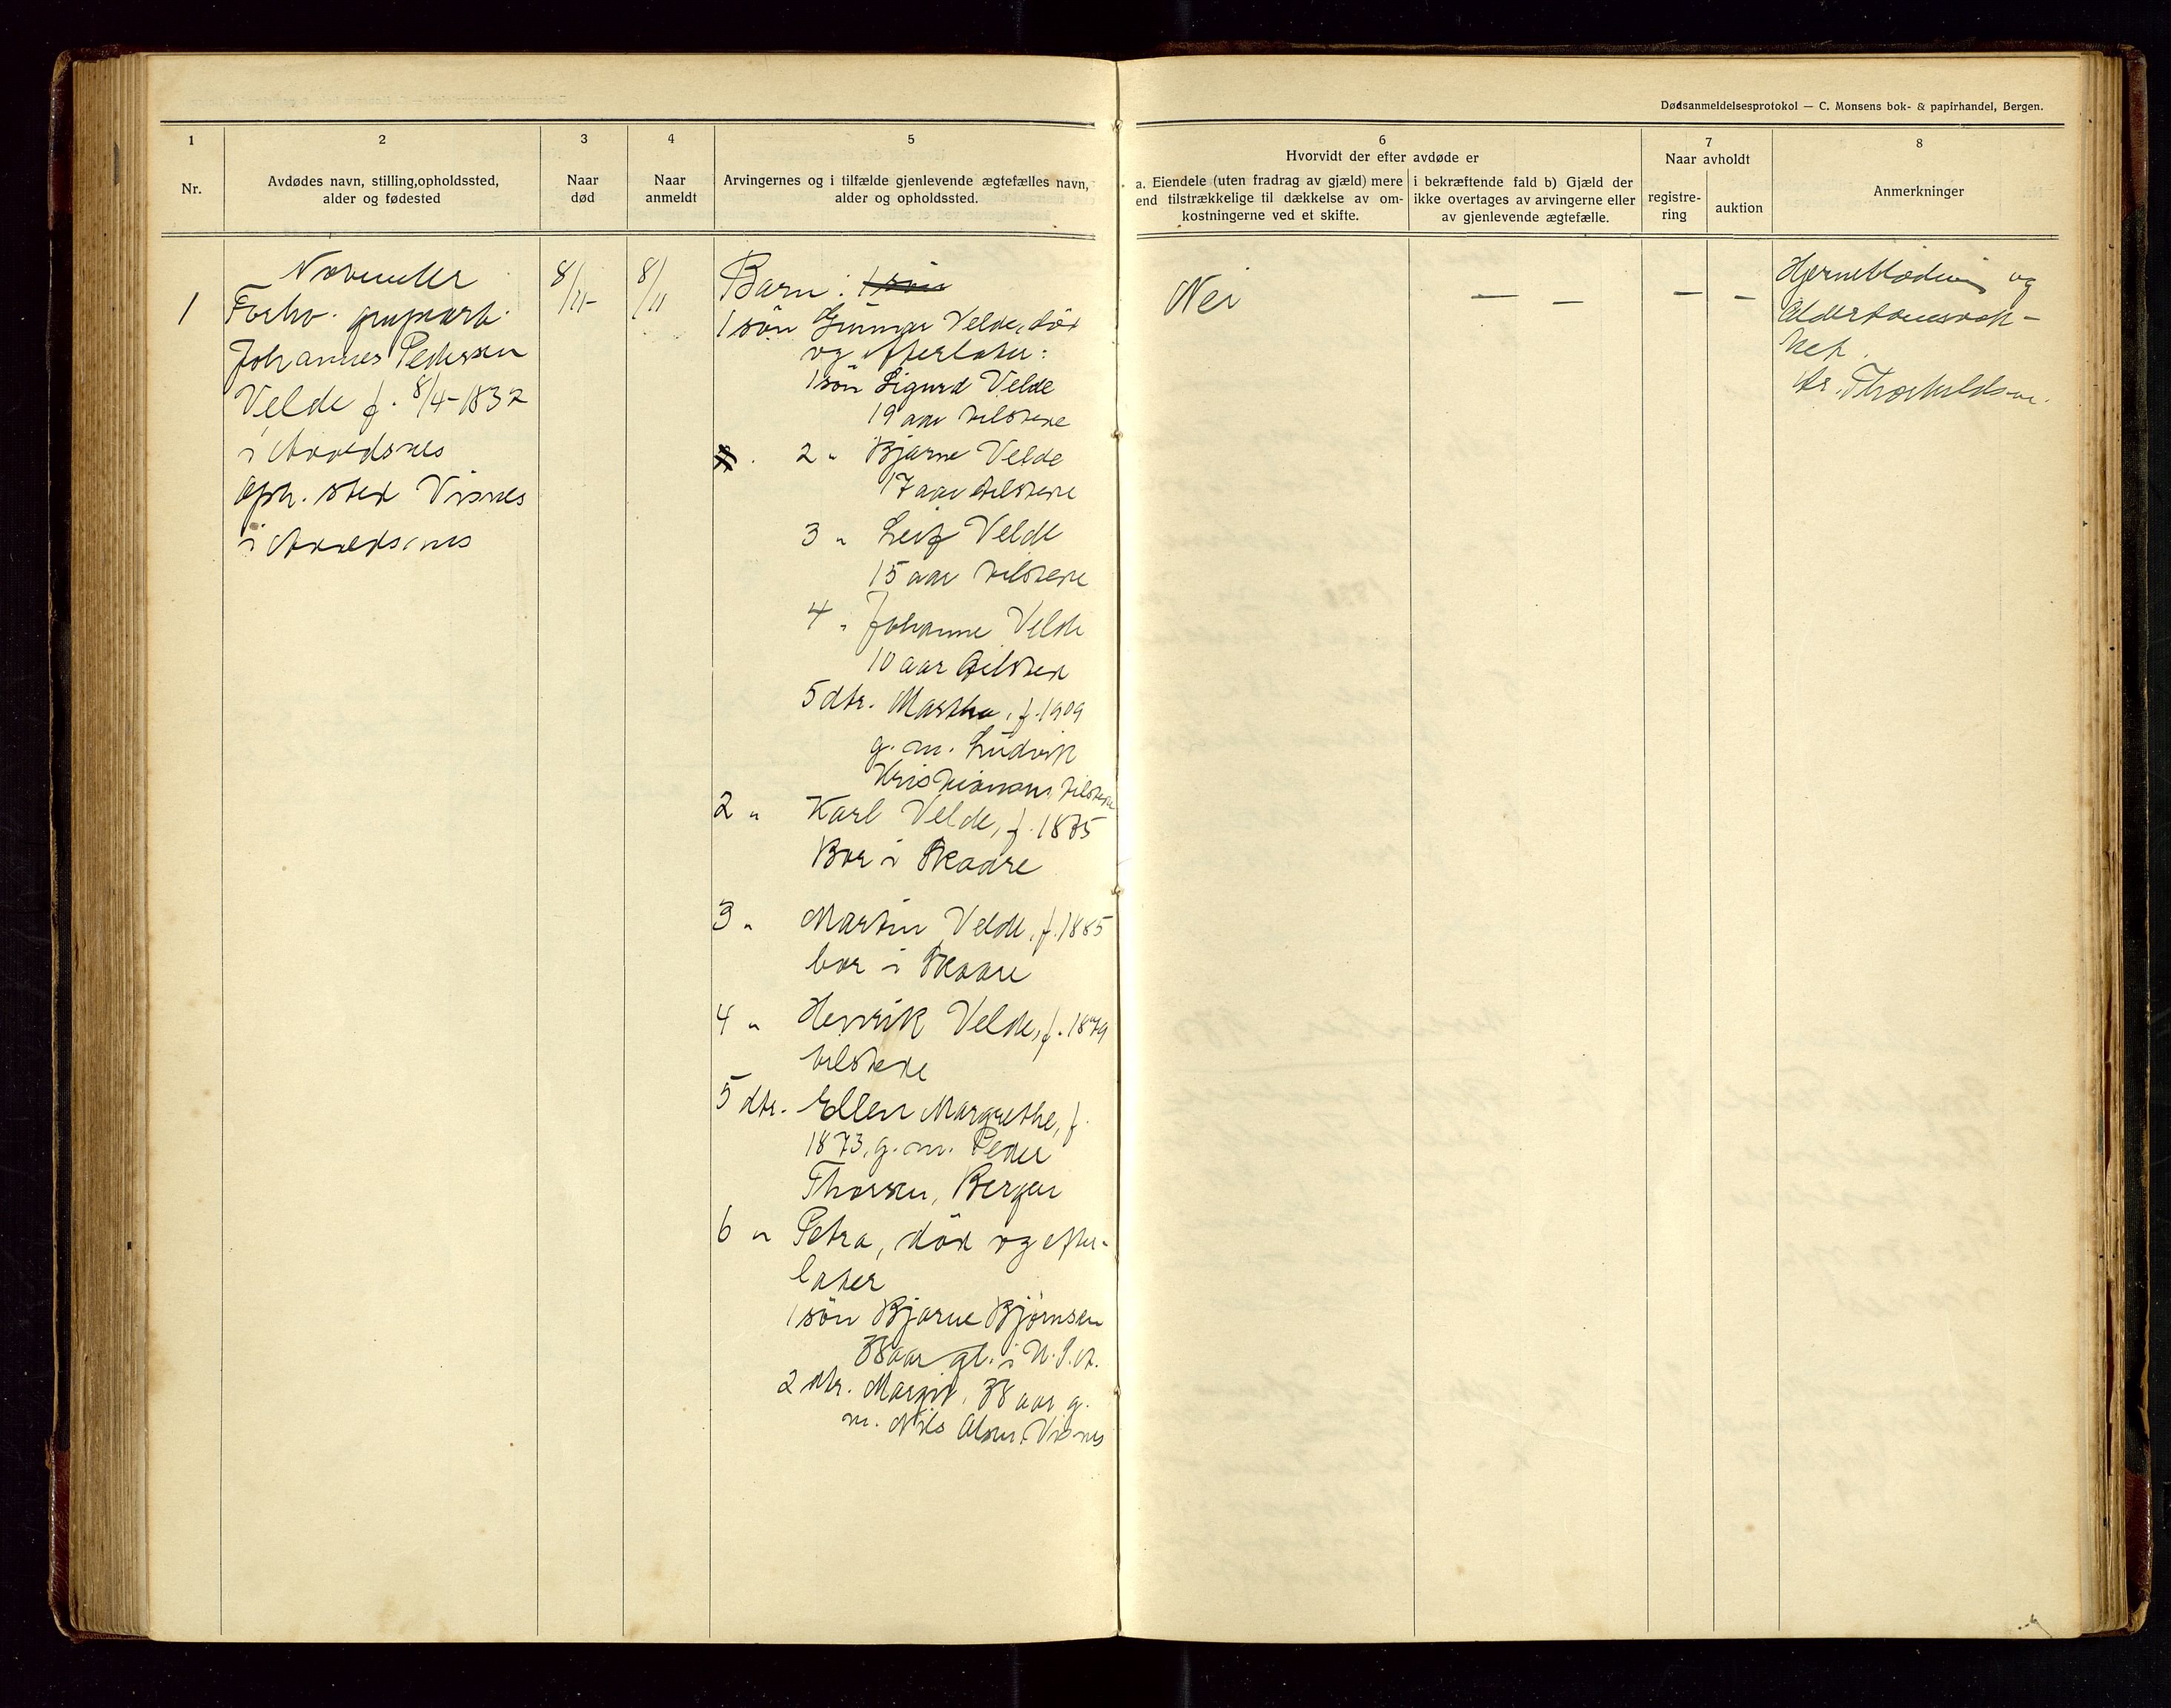 Dødsanmeldelsesprotokol — C. Monsens bok- & papirhandel, Bergen.
1
2
3
4
5
6
7
8
Nr.
Avdødes navn, stilling, opholdssted,
alder og fødested
Naar
død
Naar
anmeldt
Arvingernes og i tilfælde gjenlevende ægtefælles navn,
alder og opholdssted.
Hvorvidt der efter avdøde er
a. Eiendele (uten fradrag av gjæld) mere
end tilstrækkelige til dækkelse av om-
kostningerne ved et skifte.
i bekræftende fald b) Gjæld der
ikke overtages av arvingerne eller
av gjenlevende ægtefælle.
Naar avholdt
registre-
ring
auktion
Anmerkninger
November
1
Forhv. grupearb.
Johannes Pedersen
Velde f. 8/4-1832
i Avaldsnes
Oph. sted Visnes
i Avaldsnes
8/11-
8/11
Barn: 1 søn
1 søn Gunnar Velde, död
og efterlater:
1 søn Sigurd Velde
19 aar tilstede
2 " Bjarne Velde
17 aar tilstede
3 " Leif Velde
15 aar tilstede
4 " Johanne Velde
10 aar tilsted
5 dtr. Martha, f. 1909
g. m. Ludvik
Kristiansen, tilstede
2 " Karl Velde, f. 1875
Bor i Skaare
3 " Martin Velde, f. 1885
bor i Skaare
4 " Henrik Velde, f. 1879
tilstede
5 dtr. Ellen Margrethe, f.
1873, g. m. Peder
Thorsen, Bergen
6 " Petra, död og efter-
later
1 søn Bjarne Björnsen
38 aar gl. i U.S.A.
2 dtr. Margit, 38 aar g.
m. Nils Olsen, Visnes
Nei
— —
— —
Hjerneblødning og
Alderdomssvak-
het.
dr. Thorkildsen.